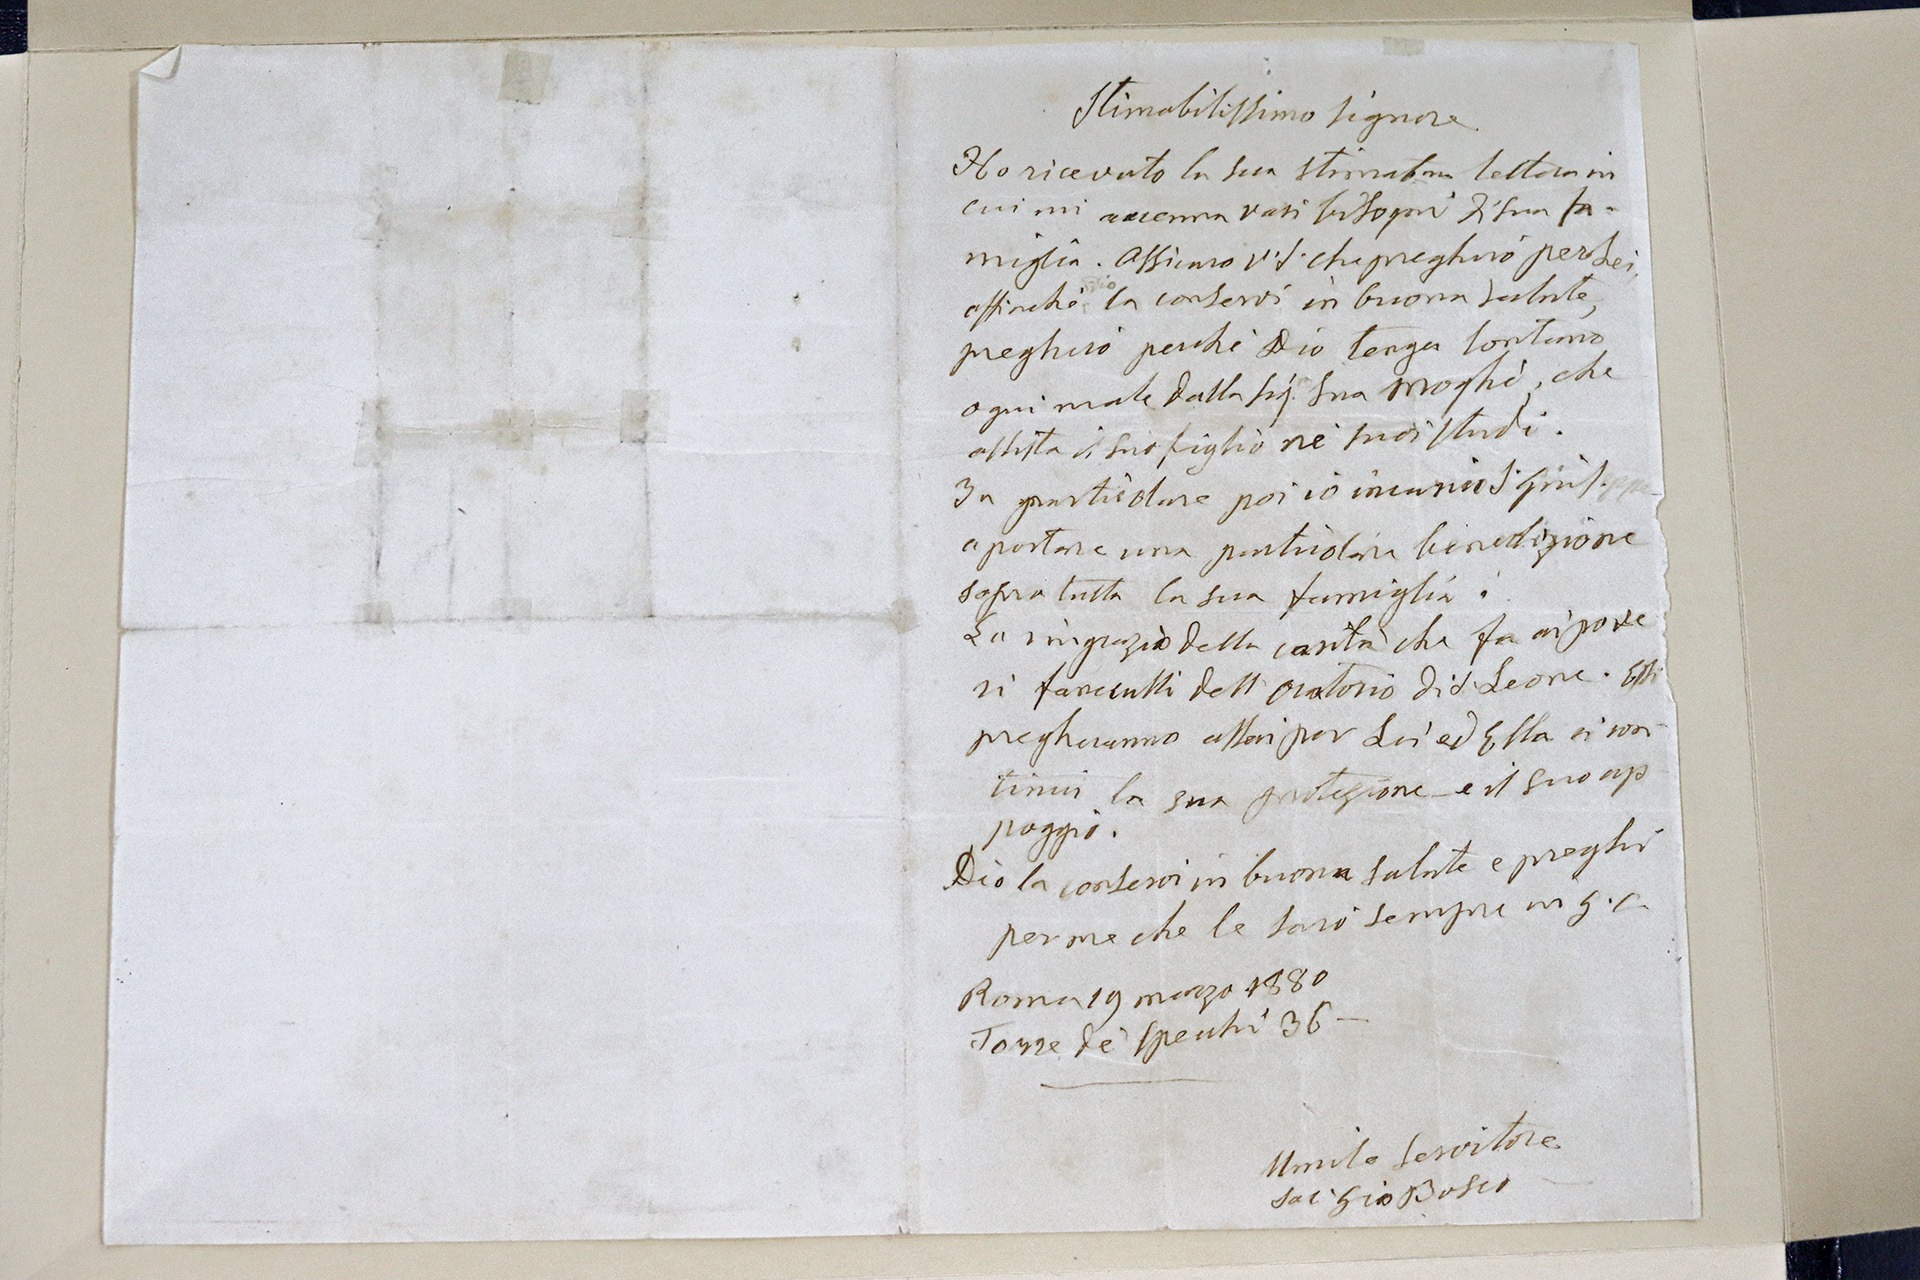 Stimabilissimo Signore
Ho ricevuto la sua stimatissima lettera in
cui mi accenna vari bisogni di sua fa-
miglia. Assicuro V. S. che pregherò per Lei,
affinchè Dio la conservi in buona salute,
pregherò perchè Dio tenga lontano
ogni male dalla Sig. sua moglie, che
assista il suo figlio ne' suoi studi.
In particolare poi io incarico S. Giuseppe
a portare una particolare benedizione
sopra tutta la sua famiglia.
La ringrazio della carità che fa ai pove
ri fanciulli dell'Oratorio di S. Leone. Essi
pregheranno assai per Lei ed Ella ci con
tinui la sua protezione e il suo ap
poggio.
Dio la conservi in buona salute e preghi
per me che le sarò sempre in G. C.
Roma 19 marzo 1880
Torre de' Specchi 36 -
Umile Servitore
Sac. Gio Bosco